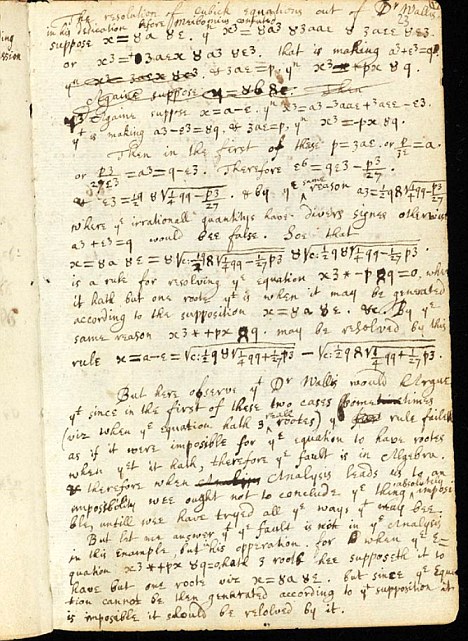 The resolution of Cubick equations out of Dr Wallis
in his dedication before Meibomius confuted
23
suppose x=8a8e. yn x3=8a3 83aae 8 3aee 8e3.
or x3=3aex 8a3 8e3. that is making a3+e3=q.
& 3ae=p. yn x3 * -px 8q.
Againe suppose x=a-e. yn x3=a3-3aae+3aee-e3.
yt is making a3-e3=8q. & 3ae=p. yn x3=-px 8q.
Then in the first of these p=3ae. or p/3e=a.
or p3/27e3=a3=q-e3. Therefore e6=qe3-p3/27.
& e3=½q8√¼qq-p3/27. & by ye same reason a3=½q8√¼qq-p3/27
where ye irrationall quantitys have divers signes otherwise
a3+e3=q would bee false. Soe that
x=8a8e=8√c:½q8√¼qq-1/27p3 8√c:½q8√¼qq-1/27p3.
is a rule for resolving ye equation x3*-p8q=0, when
it hath but one roote yt is when it may be generated
according to the supposition x=8a8e. &c. By ye
same reason x3*+px8q. may be resolved by this
rule x=a-e=√c:½q8√¼qq+1/27p3 -√c:½q8√¼qq+1/27p3.
But here observe yt Dr Wallis would Argue
yt since in the first of these two cases sometimes
(viz when ye equation hath 3 reall roots) ye rule faileth
as if it were imposible for ye equation to have roots
when yet it hath, therefore ye fault is in Algebra.
& therefore when Analysis leads us to an
impossibility wee ought not to conclude ye thing absolutely impossi-
ble, untill wee have tryed all ye ways yt may bee.
But let me answer yt ye fault is not in ye Analysis
in this Example, but his opperation. for when ye E-
quation x3*+px8q=0 hath 3 roots hee supposeth it to
have but one roote viz x=8a8e. but since ye Equa-
tion cannot be then generated according to yt supposition it
is imposible it should be resolved by it.